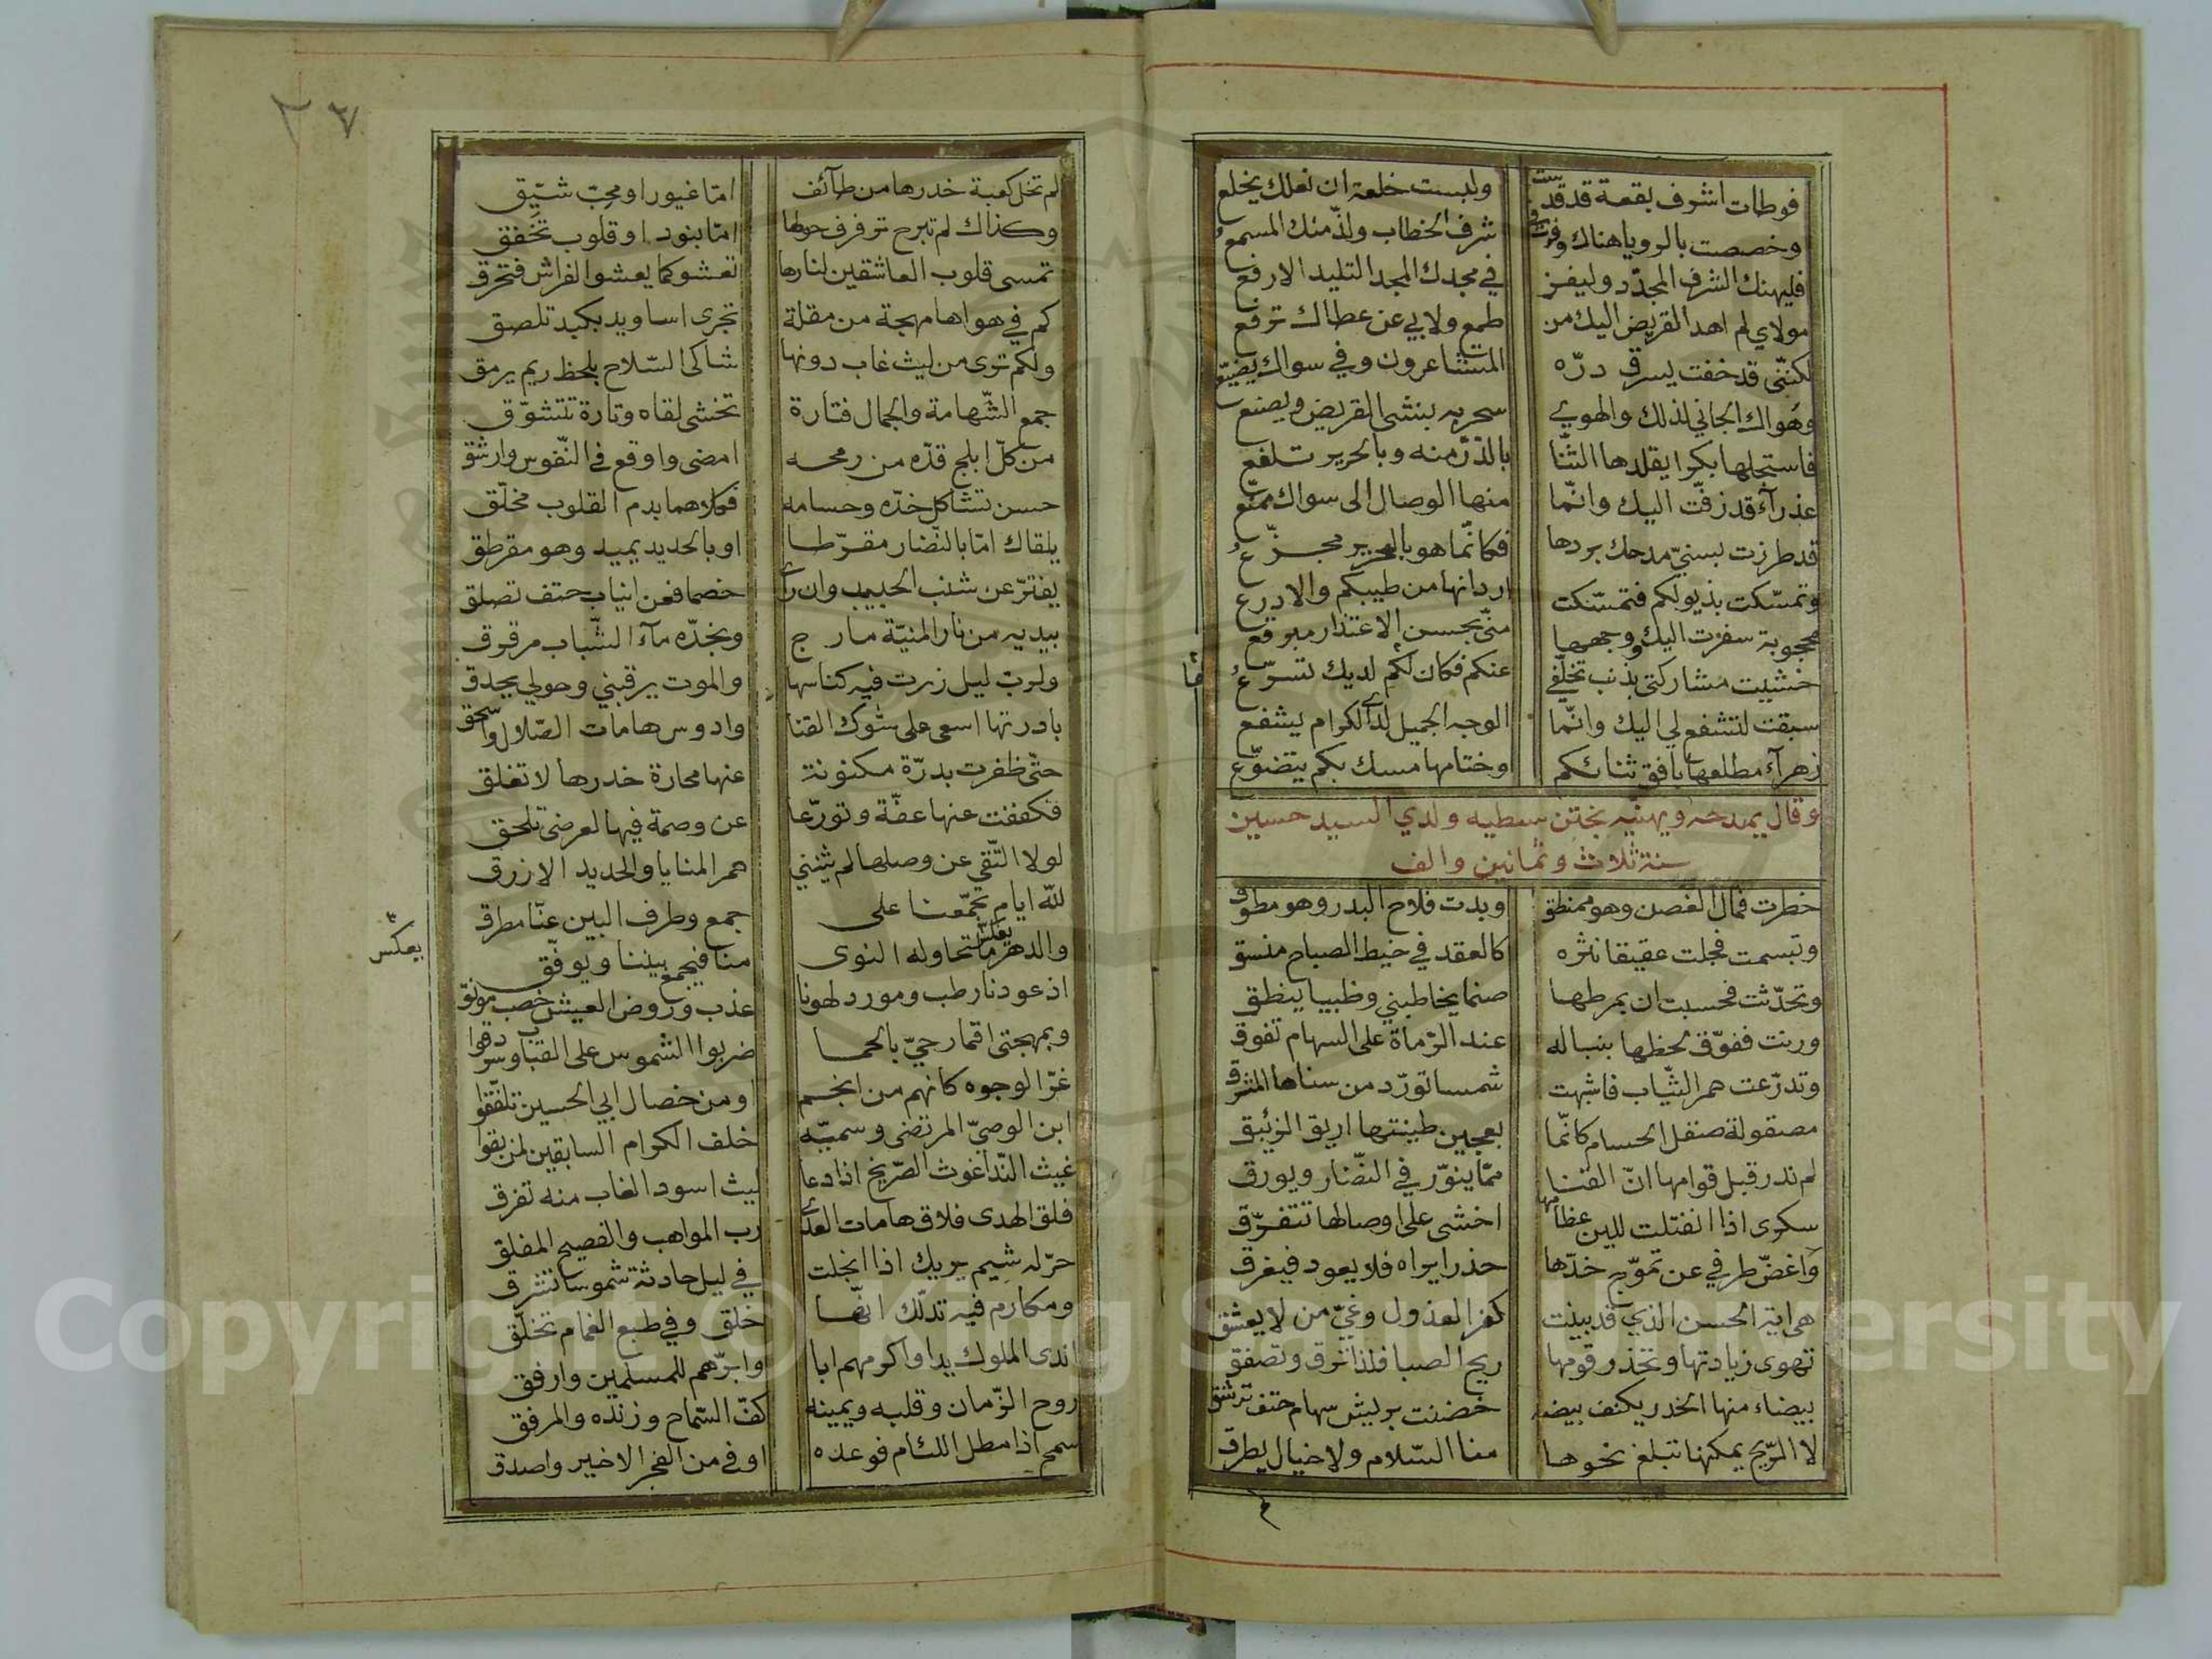 فوطات اشرف بقعة قد قدست ولبست خلعة ان نعلك يخلع
وخصصت بالرويا هناك وفزت في شرف الخطاب ولذ منك المسمع
فليهنك الشرف المجدّد وليفز في مجدك المجد التليد الارفع
مولاي لم اهد القريض اليك من طمع ولا بي عن عطاك ترفع
لكنّني قد خفت يسرق درّه المتشاعرون وفي سواك يضيّع
وهواك الجاني لذلك والهوي سحر به ينشى القريض ويصنع
فاستجلها بكرا يقلدها الثّنا بالدّرّ منه وبالحرير تلفع
عذرآء قد زفّت اليك وانّما منها الوصال الى سواك ممنّع
قد طرزت بسنيّ مدحك بردها فكانّما هو بالحرير مجزّع
وتمسّكت بذيولكم فتمسّكت اردانها من طيبكم والادرع
محجوبة سفرت اليك ووجهها منّي بحسن الاعتذار مبرقع
خشيت مشاركتي بذنب تخلّفي عنكم فكان لكم لديك تسرّع
سبقت لتشفع لي اليك وانّما الوجه الجميل لدى الكرام يشفع
زهرآء مطلعها بافق ثنائكم وختامها مسك بكم يتضوّع
وقال يمدحه ويهنيه بختن سبطيه ولدي السيد حسين
سنة ثلاث وثمانين والف
خطرت فمال الغصن وهو ممنطق وبدت فلاح البدر وهو مطوق
وتبسمت فجلت عقيقا نثره كالعقد في خيط الصباح منسق
وتحدّثت فحسبت ان بمرطها صنما يخاطبني وظبيا ينطق
ورنت ففوّق لحظها بنباله عند الرّماة على السهام تفوق
وتدرّعت حمر الثّياب فاشبهت شمسا تورّد من سناها المشرق
مصقولة صقل الحسام كانّما بعجين طينتها اريق الزئبق
لم ندر قبل قوامها انّ القنا ممّا ينوّر في النّضار ويورق
سكرى اذا انفتلت للين عظامها اخشى على اوصالها تتفرّق
واغضّ طرفي عن تموّج خدّها حذرا يراه فلا يعود فيغرق
هي اية الحسن الذي قد بينت كفر العذول وغيّ من لا يعشق
تهوى زيادتها وتحذر قومها ريح الصبا فلذا ترق وتصفق
بيضاء منها الخدر يكنف بيضة حضنت بريش سهام حتف ترشق
لا الرّيح يمكنها تبلغ نحوها منا السّلام ولا خيال يطرق
٢٧
لم تخل كعبة خدرها من طآئف امّا غيورا ومحبّ شيّق
وكذاك لم تبرح ترفرف حولها امّا بنود او قلوب تخفق
تمسى قلوب العاشقين لنارها تعشو كما يعشو الفراش فتحرق
كم في هواها مهجة من مقلة تجرى اسا ويد بكبد تلصق
ولكم ترى من ليث غاب دونها شاكى السّلاح بلحظ ريم يرمق
جمع الشّهامة والجمال فتارة تخشى لقاه وتارة تتشوّق
من كلّ ابلج قدّه من رمحه امضى واوقع في النّفوس وارشق
حسن تشاكل خدّه وحسامه فكلاهما بدم القلوب مخلّق
يلقاك امّا بالنّضار مقرّطا او بالحديد يميد وهو مقرطق
يفترّ عن شنب الحبيب وان رأى خصما فعن انياب حتف تصلق
بيديه من نار المنيّة مارج وبخدّه مآء الشّباب مرقرق
ولربّ ليل زرت فيه كناسها والموت يرقبني وحولي يحدق
بادرتها اسعى على شوك القنا وادوس هامات الصّلال واسحق
حتّى ظفرت بدرّة مكنونة عنها محارة خدرها لا تغلق
فكففت عنها عفّة وتورّعا عن وصمة فيها لعرضى تلحق
لولا التّقى عن وصلها لم يثنني حمر المنايا والحديد الازرق
للّه ايام تجمّعنا على جمع وطرف البين عنّا مطرق
والدهر يعكس ما تحاوله النوى منا فيجمع بيننا ويوفّق
يعكس
اذ عودنا رطب ومورد لهونا عذب وروض العيش خصب مونق
وبمهجتي اقمار حيّ بالحما ضربوا الشموس على القباب وسردقوا
غرّ الوجوه كانهم من انجم ومن خصال ابي الحسين تلفّقوا
ابن الوصيّ المرتضى وسميّه خلف الكرام السابقين لمن بقوا
غيث النّدا غوث الصّريخ اذا دعا ليث اسود الغاب منه تفرق
فلق الهدى فلاق هامات العدى رب المواهب والفصيح المفلق
حرّ له شيم يريك اذا انجلت في ليل حادثة شموسا تشرق
ومكارم فيه تدلّك انّها خلق وفي طبع الغمام تخلّق
اندى الملوك يدا واكرمهم ابا وابرّهم للمسلمين وارفق
روح الزّمان وقلبه ويمينه كفّ السّماح وزنده والمرفق
سمح اذا مطل اللئام فوعده اوفى من الفجر الاخير واصدق
Copyright © King S University